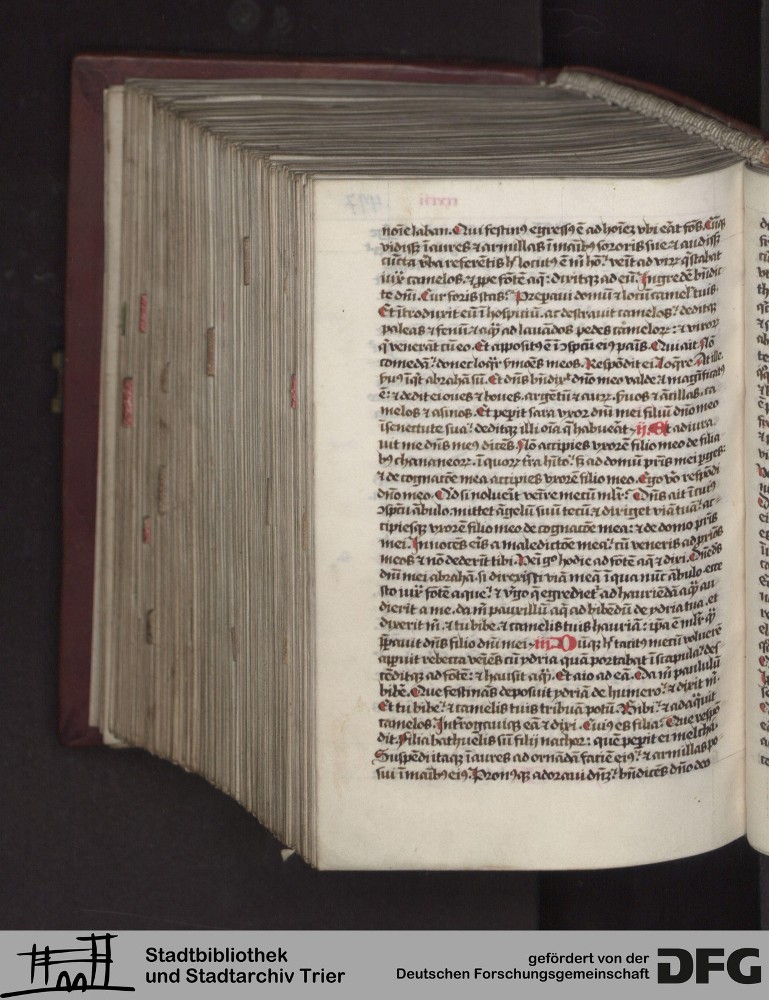 noīe laban. Qui festinꝰ egressꝰ ē ad hoīeꝫ vbi eāt fōs. Cūqꝫ
vidissꝫ īaures ⁊ armillas ī maībꝰ sororis sue ⁊ audissꝫ
cūcta v̄ba referētis h̓ locutꝰ ē m̄ hō: veīt ad virꝝ q̓ stabat
iux̄ camelos. ⁊ ꝓpe fōtē aq̄: dixitqꝫ ad eū. Ingredē bn̄dic
te dn̄i. Cur foris stas? Prepaui domū ⁊ locū camel̓ tuis.
Et ītroduxit eū ī hospiciū. ac destrauit camelos: deditqꝫ
paleas ⁊ fenū: ⁊ aq̄ꝫ ad lauādos pedes cameloꝝ: ⁊ viroꝝ
q̓ venerāt cū eo. Et appositꝰ ē ī ↄspcū eiꝰ paīs. Qui ait. Nō
comedā: donec loq̄r ẜmoēs meos. Respōdit ei. Loq̄re. At ille.
ẜuꝰ inq̄t abrahā sū. Et dn̄s bn̄dix̄ dn̄o meo valde: ⁊ magīficatꝰ
ē: ⁊ dedit ei oues ⁊ boues. argētū ⁊ auꝝ. ẜuos ⁊ ācillas. ca
melos ⁊ asinos. Et pepit sara vxor dn̄i mei filiū dn̄o meo
ī senectute sua: deditqꝫ illi oīa q̄ habueāt. ij. Et adiura
uit me dn̄s meꝰ dicēs. Nō accipies vxorē filio meo de filia
bꝰ chananeoꝝ. ī quoꝝ t̄ra hīto: sꝫ ad domū pr̄is mei ꝑges:
⁊ de cognatōe mea accipies vxorē filio meo. Ego v̓o respōdi
dn̄o meo. Qd si noluēit veīre mecū ml̓r? Dn̄s ait ī cuiꝰ
ↄspcū ābulo: mittet āgelū suū tecū: ⁊ diriget viā tuā: ac
cipiesqꝫ vxorē filio meo de cognatōe mea: ⁊ de domo pr̄is
mei. Innocēs eīs a maledictōe mea: cū veneris ad ꝓpīqos
meos ⁊ nō dederīt tibi. Veni gͦ hodie ad fōtē aq̄ ⁊ dixi. Dn̄e dꝰs
dn̄i mei abrahā. si direxisti viā meā ī qua nūc ābulo. ecce
sto iux̄ fōtē aque: ⁊ v̓go q̄ egrediet̓ ad hauriēdā aq̄ꝫ au
dierit a me. da m̄ pauxillū aq̄ ad bibēdū de ydria tua. et
dixerit m̄. ⁊ tu bibe: ⁊ camelis tuis hauriā: ipā ē ml̓r q̄ꝫ
p̄pauit dn̄s filio dn̄i mei. iij. Dūqꝫ h̓ tacitꝰ mecū volueré
apparuit rebecca veīēs cū ydria quā portabat ī scapula: des
cēditqꝫ ad fōtē: ⁊ hausit aq̄ꝫ. Et aio ad eā. Da m̄ paululū
bibē. Que festinās deposuit ydriā de humero: ⁊ dixit m̄.
Et tu bibe: ⁊ camelis tuis tribuā potū. Bibi: ⁊ adaq̄uit
camelos. Introgauiqꝫ eā ⁊ dixi. Cuiꝰ es filia? Que respō
dit. Filia bathuelis sū filij nachor: quē pepit ei melcha.
Suspēdi itaqꝫ īaures ad ornādā faciē eiꝰ: ⁊ armillas po
sui ī maībꝰ eiꝰ. Pronusqꝫ adoraui dn̄ꝫ: bn̄dicēs dn̄o deo
Stadtbibliothek
und Stadtarchiv Trier
gefördert von der
Deutschen Forschungsgemeinschaft
DFG